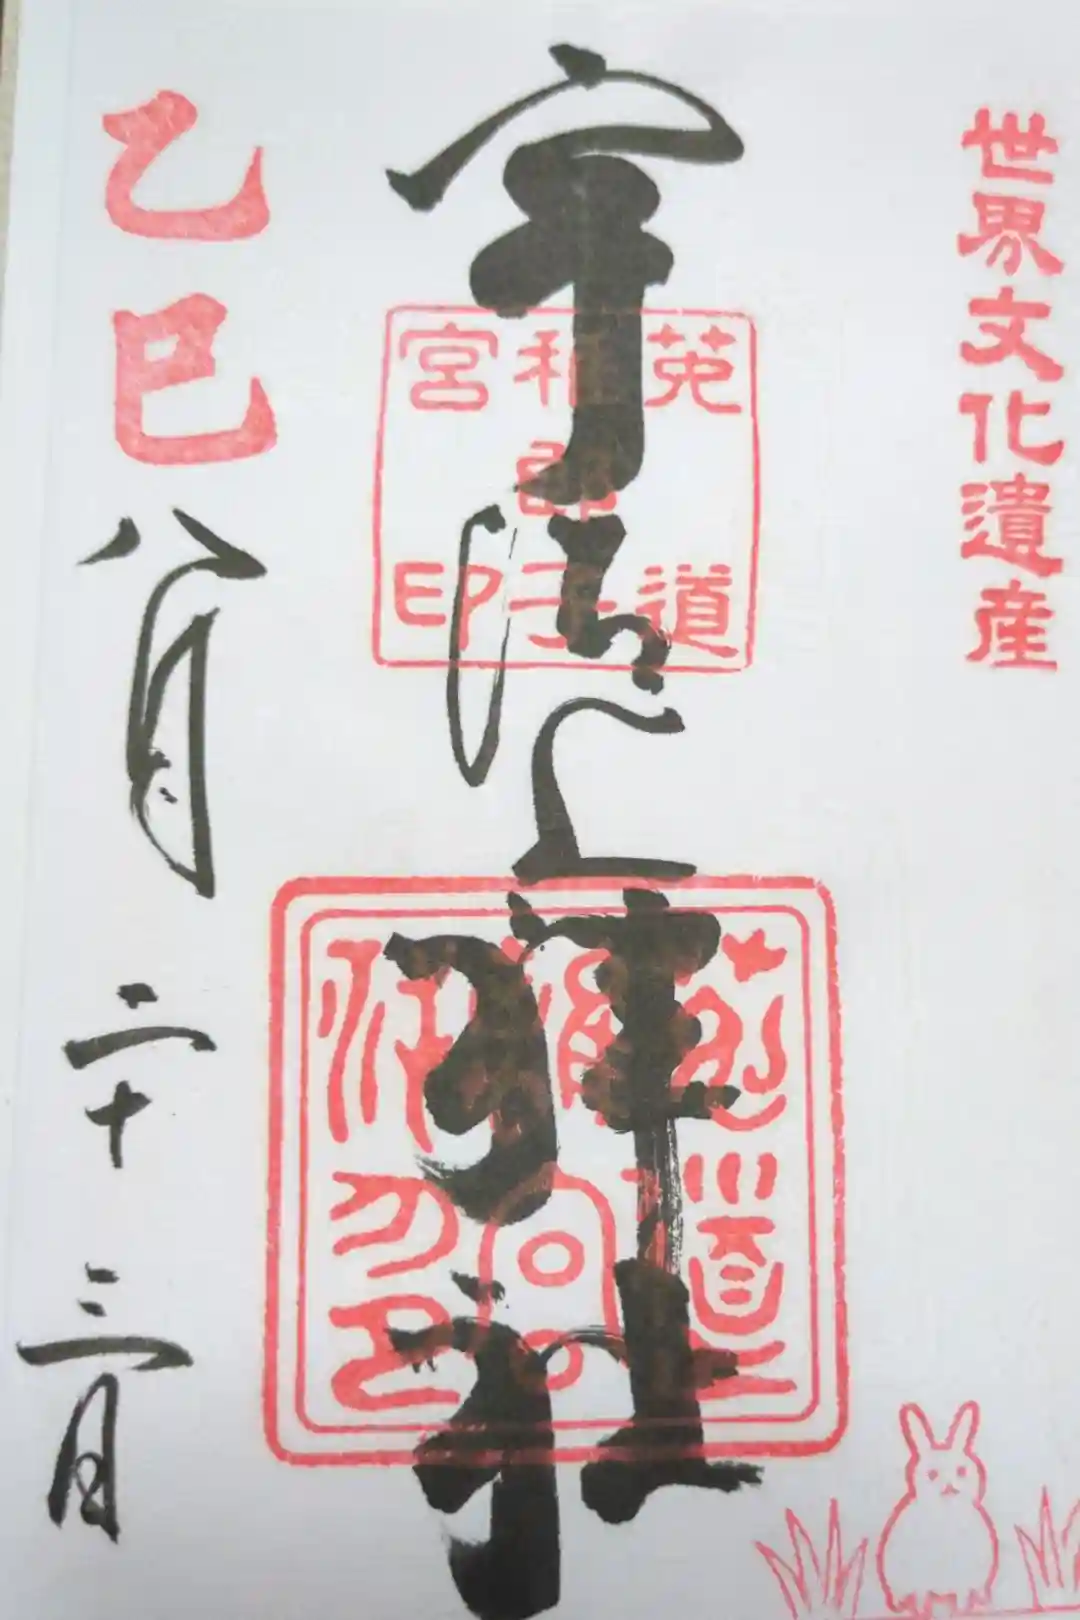 世界文化遺産
宇治上神社
菟道
稚郎子
宮印
乙巳
八月
二十
三日